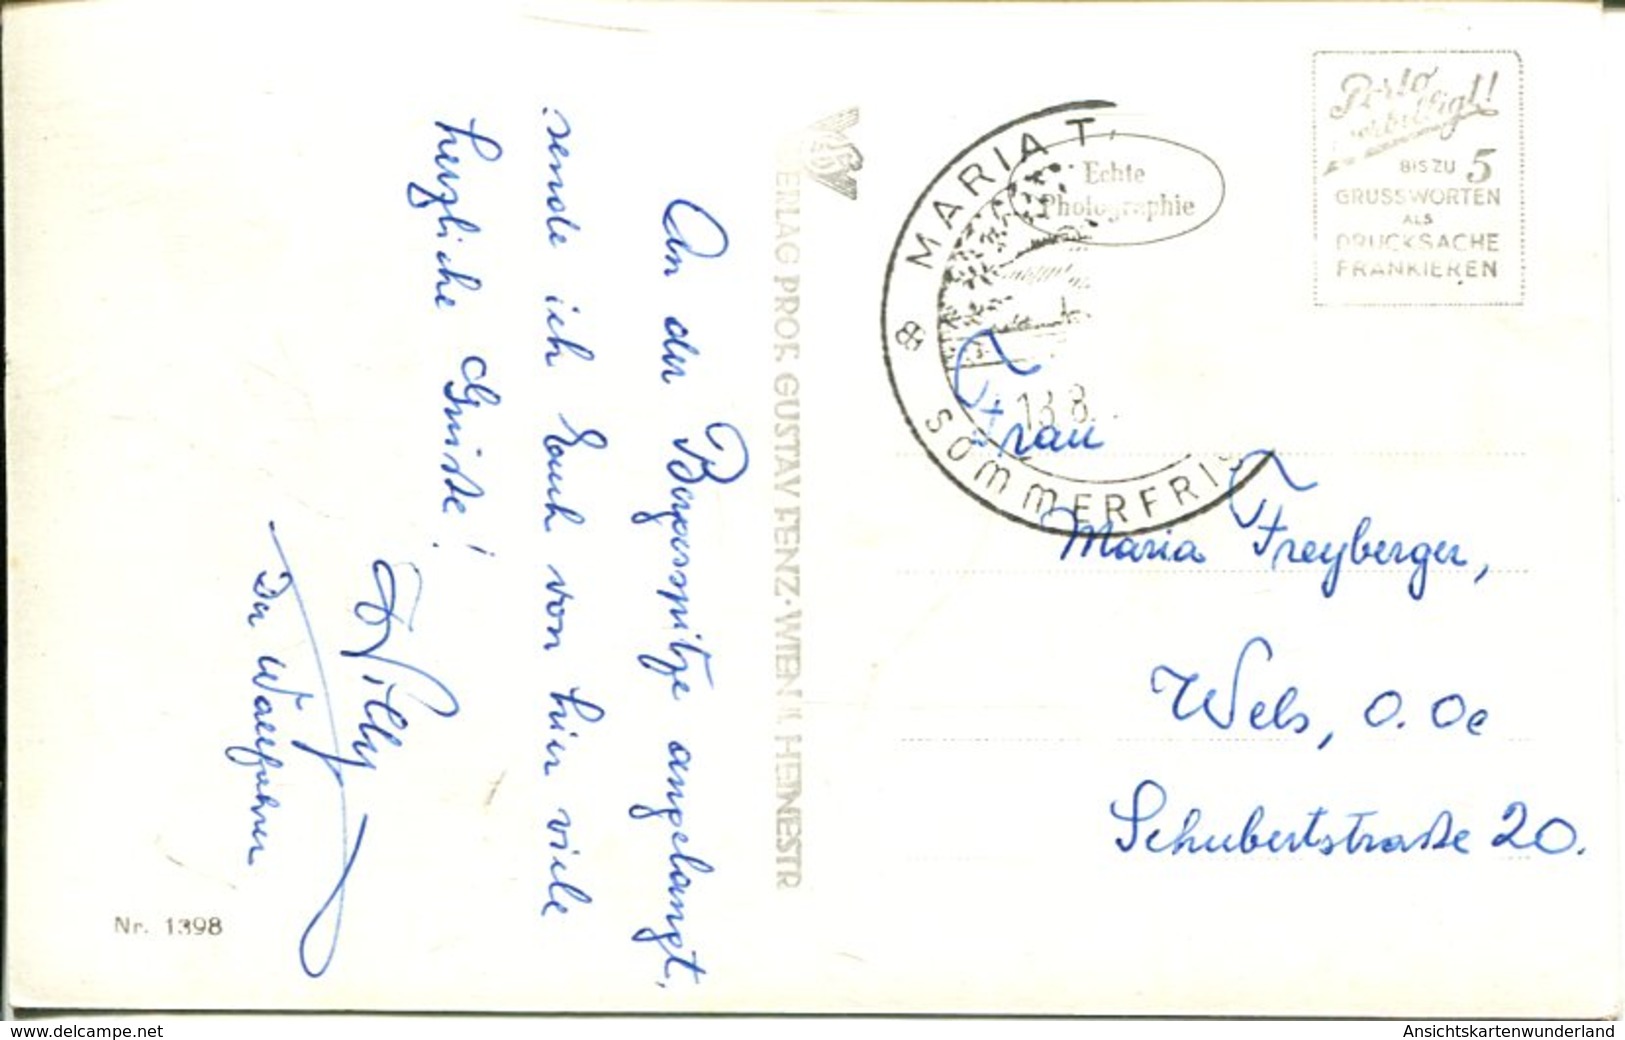 An der Bergesspitze angelangt,
sende ich Euch von hier viele
herzliche Grüße!
Willy
Nr. 1398
VERLAG PROF. GUSTAV FENZ·WIEN II. HEINESTR
MARIA T
SOMMERFRIS
13.8.
Echte
Photographie
Porto
verbilligt!
BIS ZU 5
GRUSSWORTEN
ALS
DRUCKSACHE
FRANKIEREN
Frau
Maria Freyberger,
Wels, O.Oe
Schubertstraße 20.
www.delcampe.net
Ansichtskartenwunderland